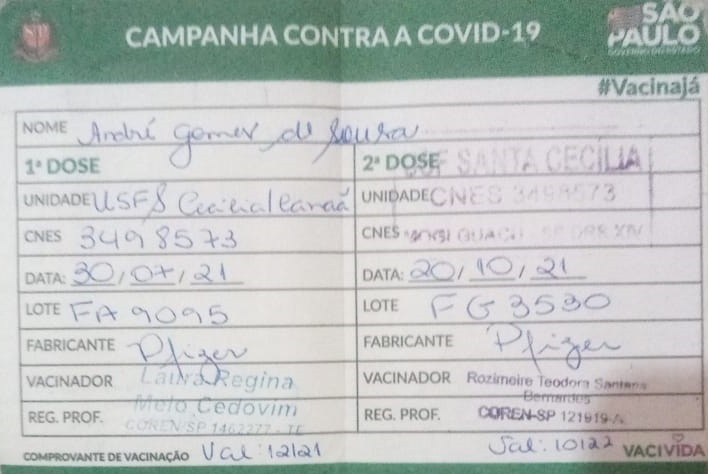 CAMPANHA CONTRA A COVID-19
SÃO PAULO
GOVERNO DO ESTADO
#Vacinajá
NOME André Gomes de Souza
1ª DOSE
UNIDADE USFS Cecilia/Canaã
CNES 3498573
DATA: 30/07/21
LOTE FA9095
FABRICANTE Pfizer
VACINADOR Laura Regina
Melo Cedovim
REG. PROF. COREN/SP 1462277 - TE
2ª DOSE SANTA CECÍLIA
UNIDADE CNES 3498573
CNES MOGI GUAÇU SP DRS XIV
DATA: 20/10/21
LOTE FG3530
FABRICANTE Pfizer
VACINADOR Rozimeire Teodora Santana
Bernardes
REG. PROF. COREN-SP 121919-A
COMPROVANTE DE VACINAÇÃO Val: 12/21
Val: 10/22 VACIVIDA